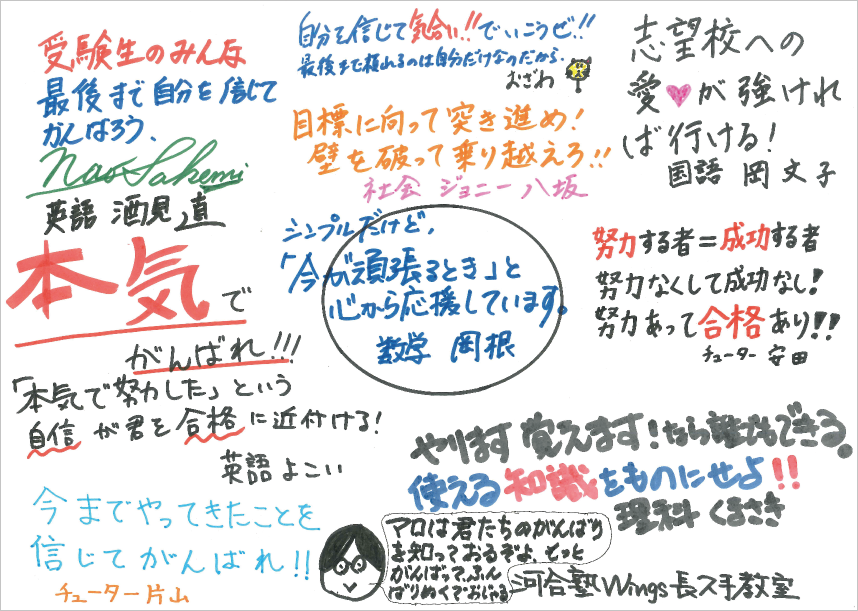 受験生のみんな
最後まで自分を信じて
がんばろう.
Nao Sakemi
英語 酒見 直
自分を信じて気合い!!でいこうぜ!!
最後まで頼れるのは自分だけなのだから.
おざわ
目標に向って突き進め!
壁を破って乗り越えろ!!
社会 ジョニー八坂
志望校への
愛♥が強けれ
ば行ける!
国語 岡 文子
本気で
がんばれ!!!
「本気で努力した」という
自信が君を合格に近付ける!
英語 よこい
シンプルだけど,
「今が頑張るとき」と
心から応援しています。
数学 岡根
努力する者=成功する者
努力なくして成功なし!
努力あって合格あり!!
チューター 安田
やります 覚えます!なら誰でもできる.
使える知識をものにせよ!!
理科 くまさき
今までやってきたことを
信じてがんばれ!!
チューター 片山
マロは君たちのがんばり
を知っておるぞよ、もっと
がんばって、ふん
ばりぬくでおじゃる
河合塾Wings長久手教室